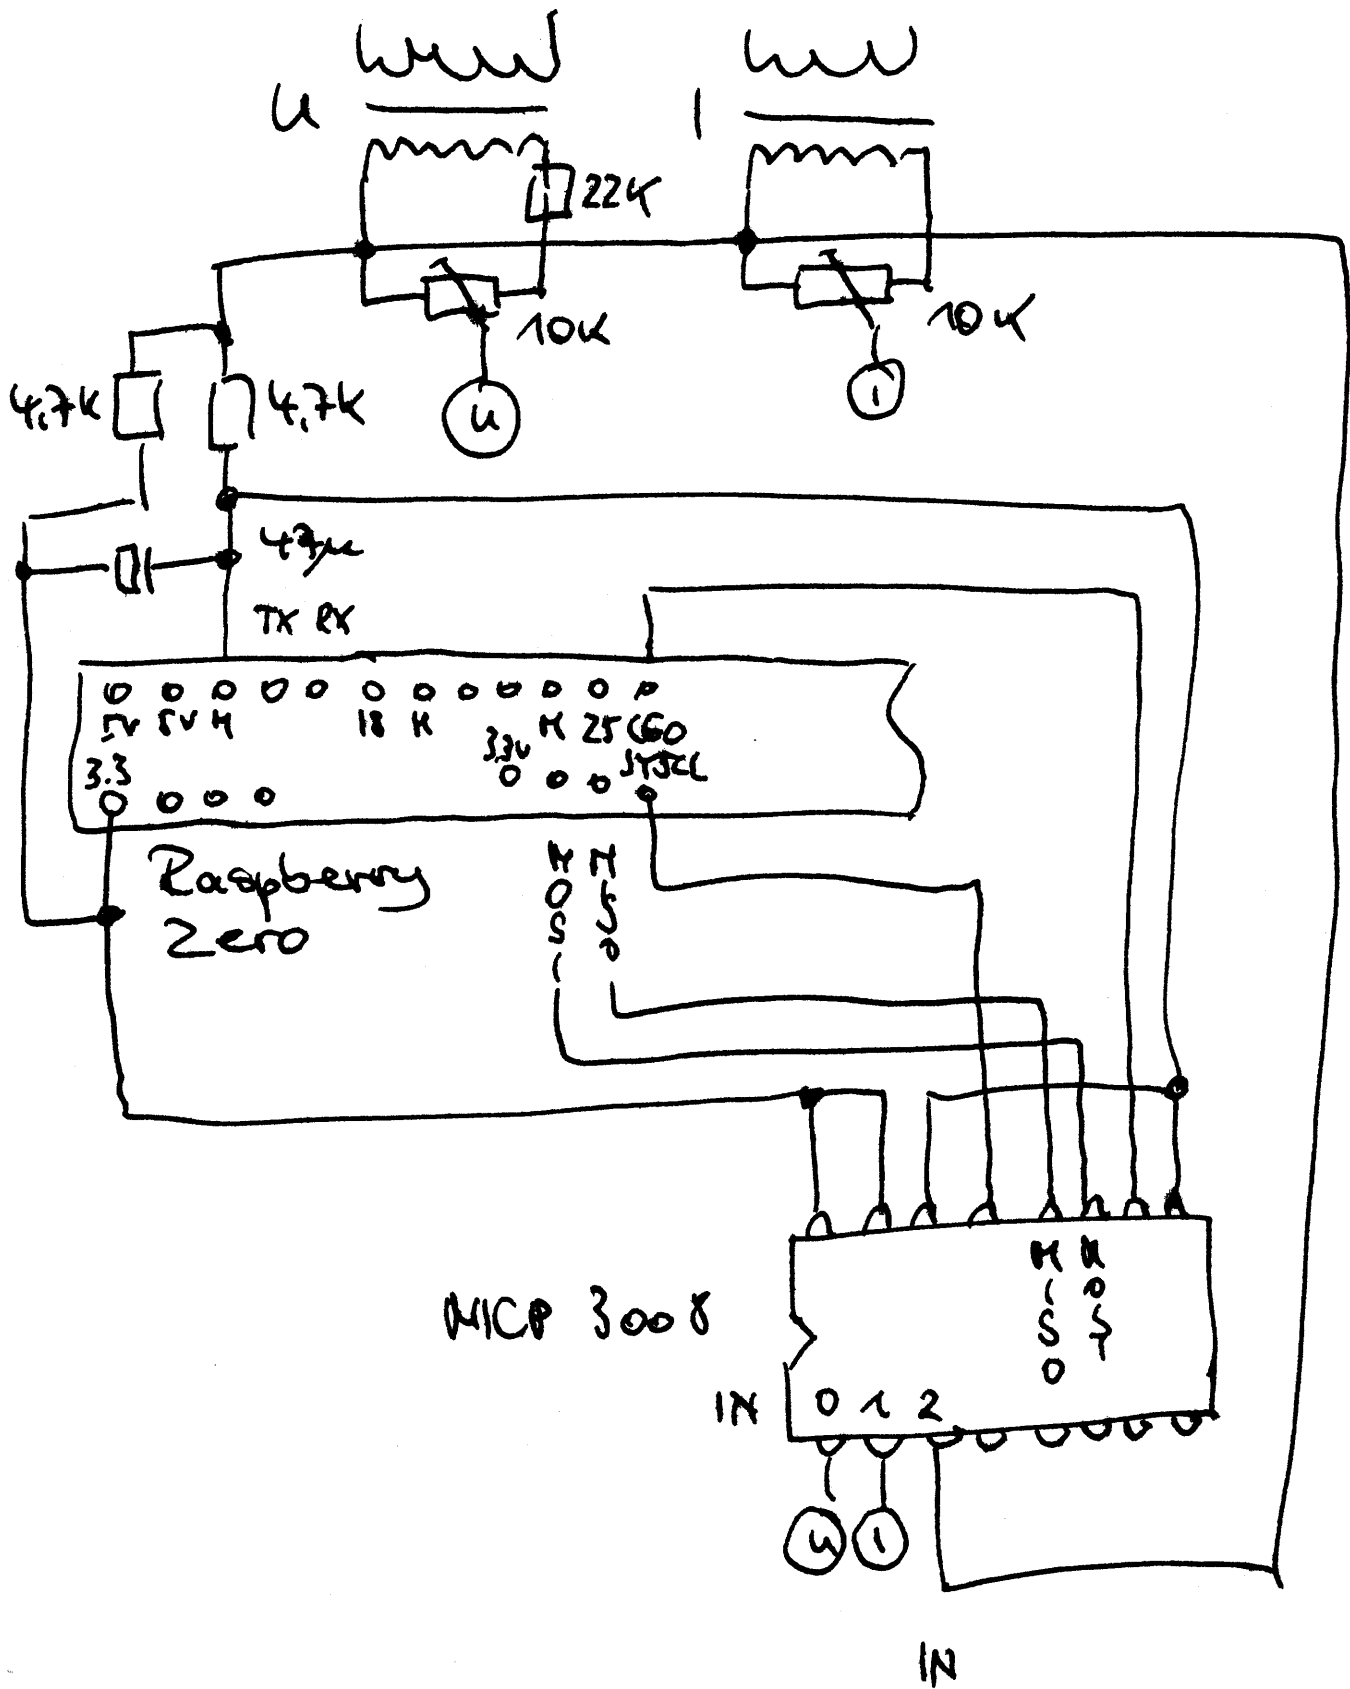 U
I
22K
10K
10K
4,7K
4,7K
U
I
47µ
TX RX
5V 5V M 18 M M 25 CE0
3.3 3,3V SYSCL
Raspberry
Zero
MOSI
MISO
MISO
MOSI
MCP 3008
IN 0 1 2
U I
IN